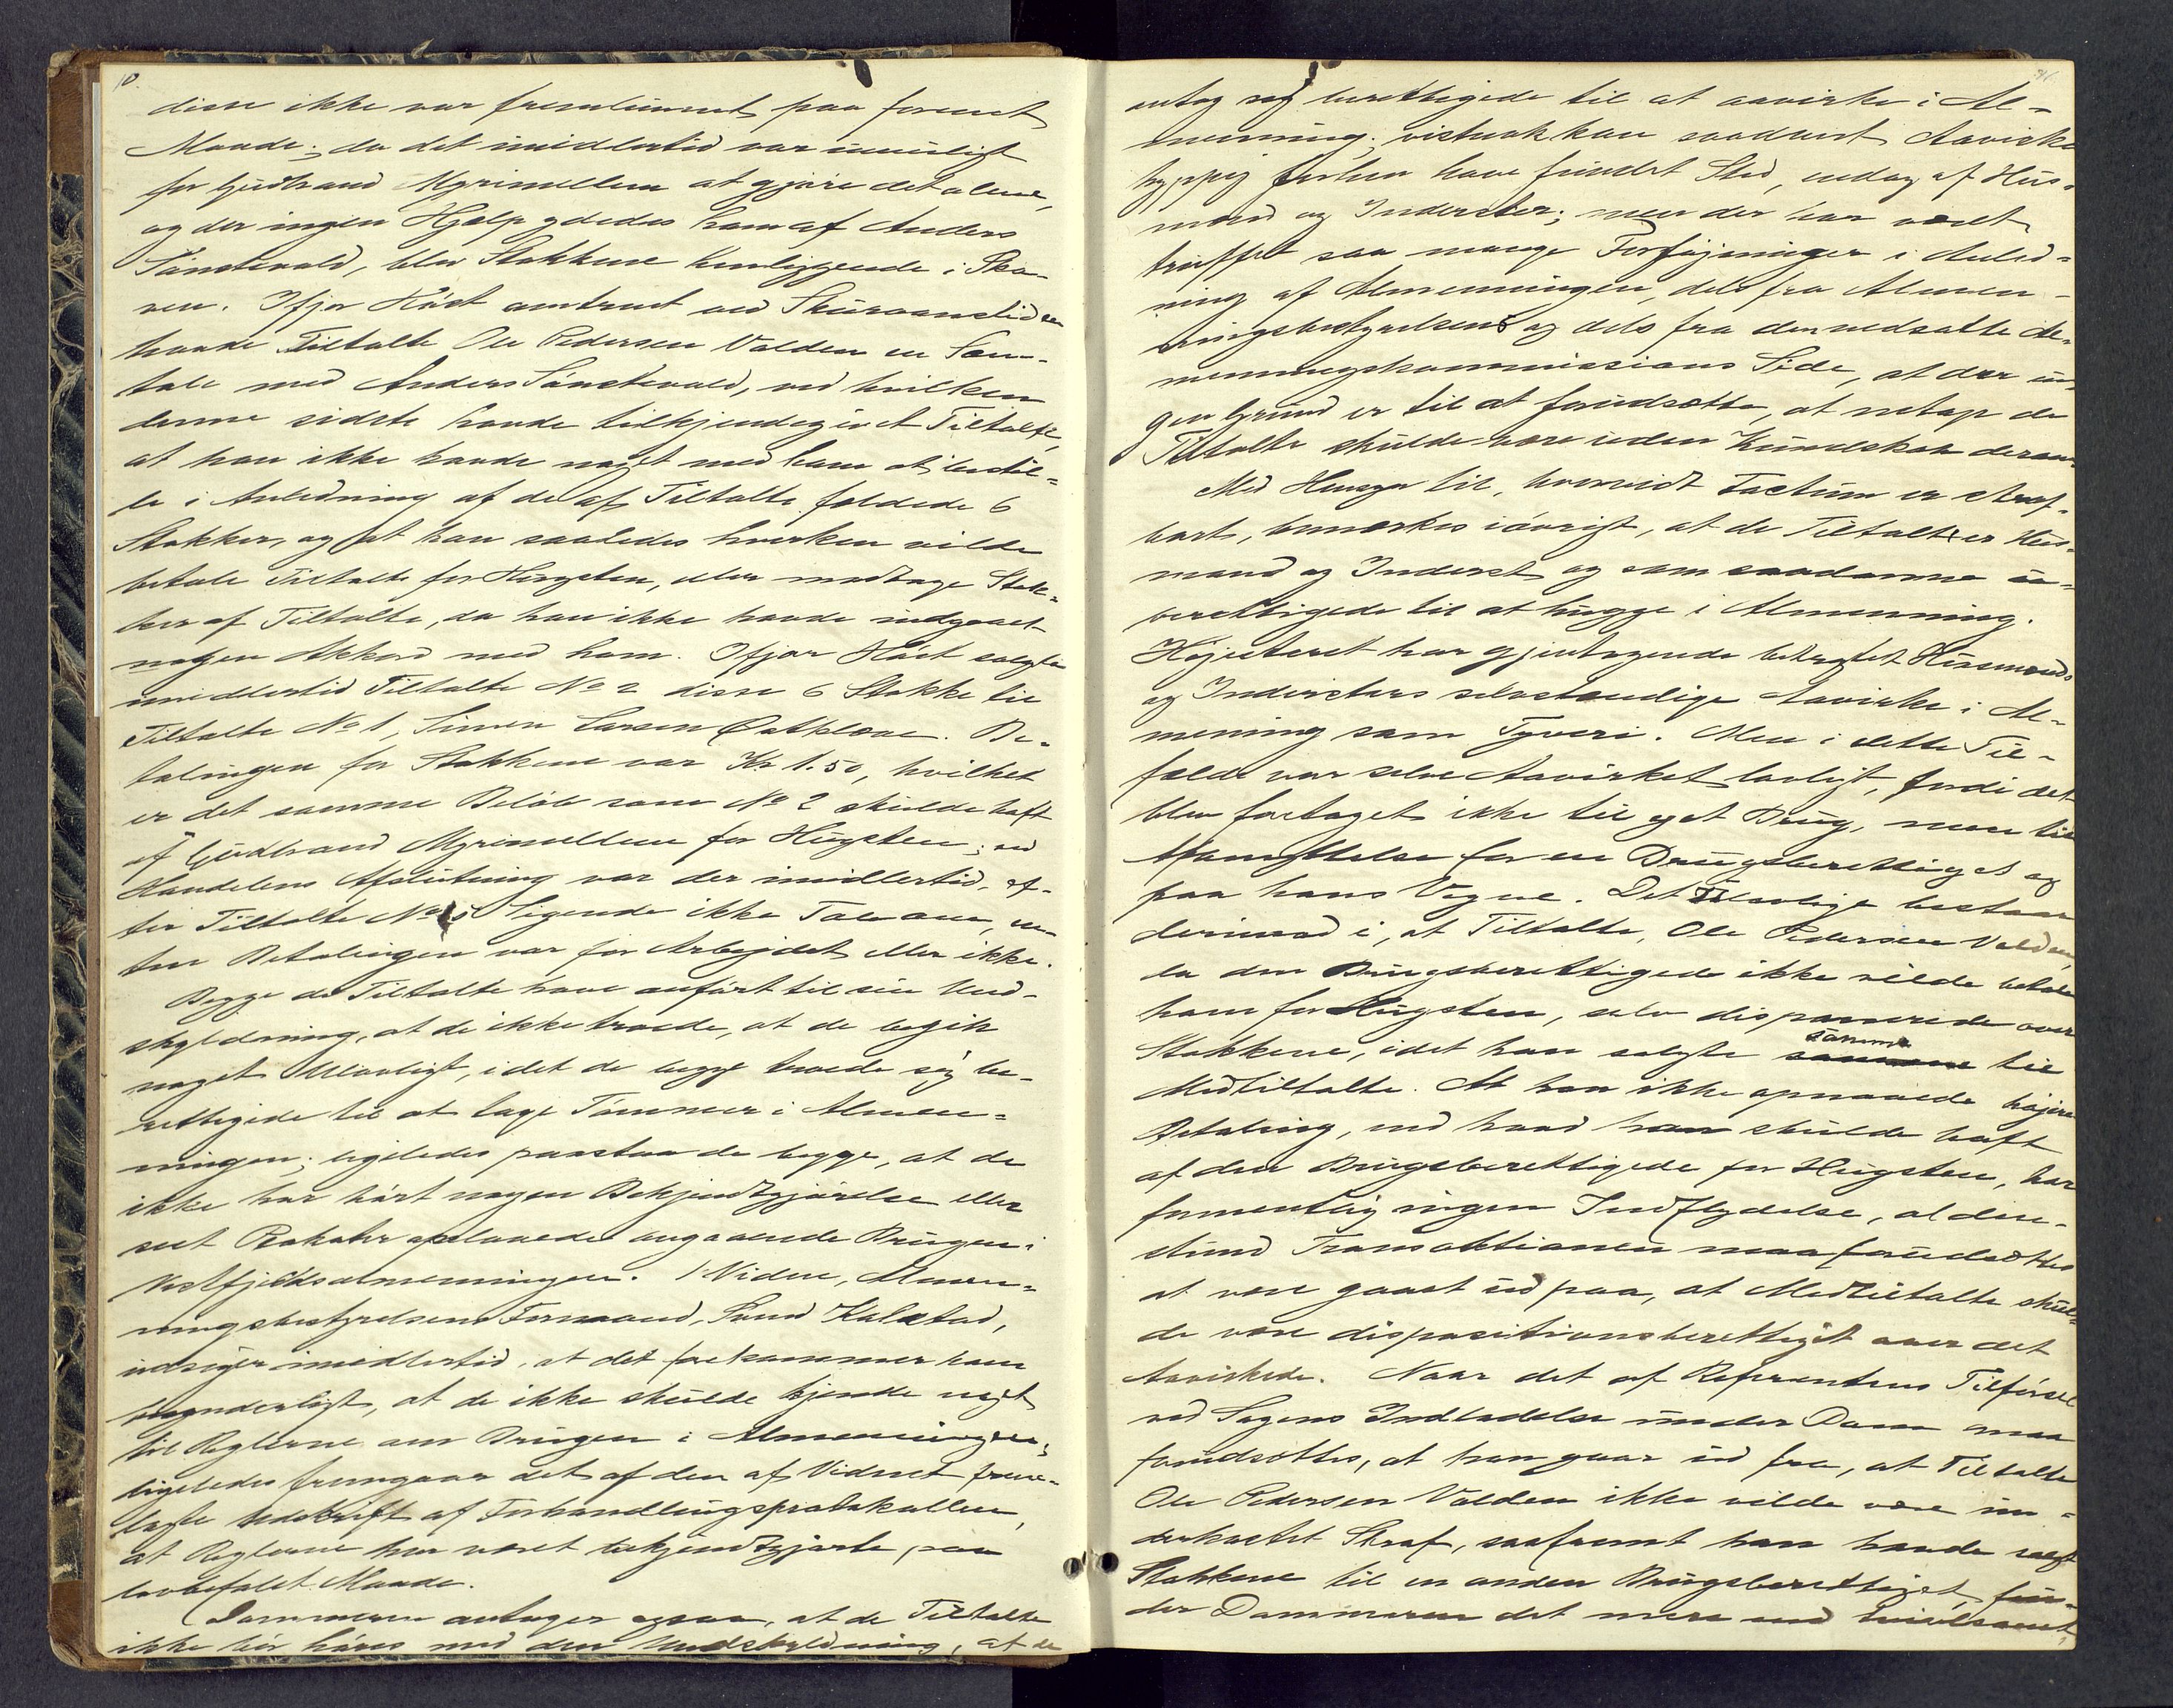 disse ikke var fremkommet paa forenet
Maade; da det imidlertid var umuligt
for Gudbrand Myrimellem at gjøre det alene,
og der ingen Hjælp ydedes ham af Anders
Sønstevold, blev Stokkene henliggende i Sko-
ven. Ifjor Høst omtrent ved Skuronnstiden
havde Tiltalte Ole Pedersen Volden en Sam-
tale med Anders Sønstevold, ved hvilken
denne sidste havde tilkjendegivet Tiltalte,
at han ikke havde noget med ham at bestil-
le i Anledning af de af Tiltalte fældede 6
Stokker, og at han saaledes hverken vilde
betale Tiltalte for Hugsten, eller modtage Stok-
ker af Tiltalte, da han ikke havde indgaaet
nogen Akkord med ham. Ifjor Høst solgte
imidlertid Tiltalte No 2 disse 6 Stokke til
Tiltalte No 1, Simen Larsen. Be-
talingen for Stokkene var Kr 1.50, hvilket
er det samme Beløb som No 2 skulde haft
af Gudbrand Myrimellem for Hugsten; ved
Handelens Afslutning var der imidlertid, ef-
ter Tiltalte No Sigende ikke Tale om, en-
ten Betalingen var for Arbejdet eller ikke.
Begge de Tiltalte have anført til sin Und-
skyldning, at de ikke troede, at de begik
noget Ulovligt, idet de begge troede sig be-
rettigede til at tage Tømmer i Almen-
ningen; ligeledes paastaa de begge, at de
ikke har hørt nogen Bekjendtgjørelse eller
seet Plakater opslaaede angaaende Brugen i
Vestfjeldsalmenningen. Vidne, Almen-
ningsbestyrelsens Formand, Svend Kalstad,
udsiger imidlertid, at det forekommer ham
besynderligt, at de ikke skulde kjende noget
til Reglerne om Brugen i Almenningen;
ligeledes fremgaar det af den af Vidnet frem-
lagte Udskrift af Forhandlingsprotokollen,
at Reglerne har været bekjendtgjorte paa
lovbefalet Maade.
Dommeren antager ogsaa, at de Tiltalte
ikke bør høres med den Undskyldning, at de
antog sig berettigede til at aavirke i Al-
menning; vistnok kan saadant Aavirke
hyppig forhen have fundet Sted, endog af Hus-
mænd og Inderster; men der har været
truffet saa mange Forføjninger i Anled-
ning af Almenningen, dels fra Almen-
ningsbestyrelsens og dels fra den nedsatte Al-
menningskommissions Side, at der in-
gen Grund er til at forudsætte, at netop de
Tiltalte skulde være uden Kundskab derom.
Med Hensyn til, hvorvidt Factum er straf-
bart, bemærkes iøvrigt, at de Tiltalte er Hus-
mand og Inderst og som saadanne u-
berettigede til at hugge i Almenning.
Højesteret har gjentagende betragtet Husmænds
og Indersters selvstændige Aavirke i Al-
menning som Tyveri. Men i dette Til-
fælde var selve Aavirket lovligt, fordi det
blev foretaget ikke til eget Brug, men til
Afbenyttelse for en Brugsberettiget og
paa hans Vegne. Det Ulovlige bestaar
derimod i, at Tiltalte, Ole Pedersen Volden,
da den Brugsberettigede ikke vilde betale
ham for Hugsten, selv disponerede over
Stokkene, idet han solgte samme til
Medtiltalte. At han ikke opnaaede højere
Betaling, end hvad han skulde haft
af den Brugsberettigede for Hugsten, har
formentlig ingen Indflydelse, al den-
stund Transaktionen maa forudsættes
at være gaaet ud paa, at Medtiltalte skul-
de være dispositionsberettiget over det
Aavirkede. Naar det af Referentens Tilførsel
ved Sagens Indladelse under Dom maa
forudsættes, at han gaar ud fra, at Tiltalte
Ole Pedersen Volden ikke vilde være un-
derkastet Straf, saafremt han havde solgt
Stokkene til en anden Brugsberettiget, fin-
der Dommeren det mere end tvivlsomt,